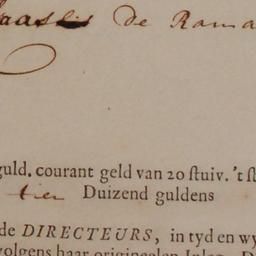 de Rama
guld. courant geld van 20 ſtuiv. 't ſt
tien Duizend guldens
de DIRECTEURS, in tyd en wy
volgens haar originealen Inleg. D